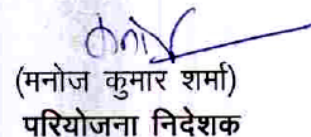 (मनोज कुमार शर्मा)
परियोजना निदेशक